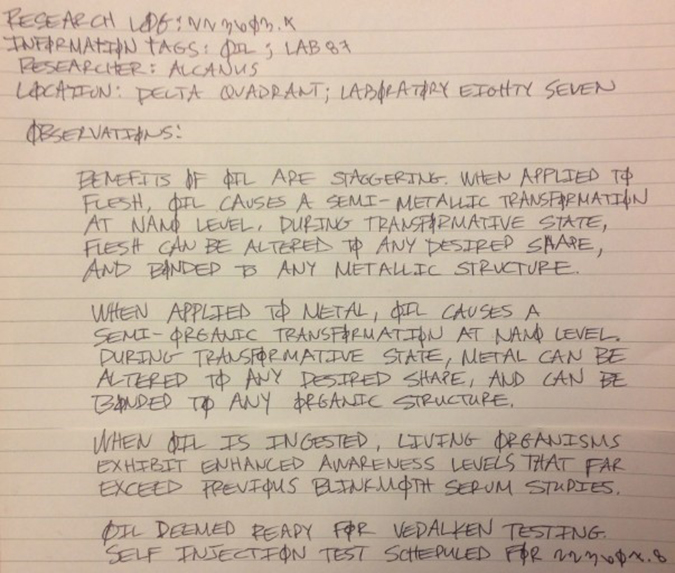 RESEARCH LOG:
INFORMATIØN TAGS: ØIL; LAB 87
RESEARCHER: ALCANUS
LØCATIØN: DELTA QUADRANT; LABØRATØRY EIGHTY SEVEN
ØBSERVATIØNS:
BENEFITS ØF ØIL ARE STAGGERING. WHEN APPLIED TØ
FLESH, ØIL CAUSES A SEMI-METALLIC TRANSFØRMATIØN
AT NANØ LEVEL. DURING TRANSFØRMATIVE STATE,
FLESH CAN BE ALTERED TØ ANY DESIRED SHAPE,
AND BØNDED TØ ANY METALLIC STRUCTURE.
WHEN APPLIED TØ METAL, ØIL CAUSES A
SEMI-ØRGANIC TRANSFØRMATIØN AT NANØ LEVEL.
DURING TRANSFØRMATIVE STATE, METAL CAN BE
ALTERED TØ ANY DESIRED SHAPE, AND CAN BE
BØNDED TØ ANY ØRGANIC STRUCTURE.
WHEN ØIL IS INGESTED, LIVING ØRGANISMS
EXHIBIT ENHANCED AWARENESS LEVELS THAT FAR
EXCEED PREVIØUS BLINKMØTH SERUM STUDIES.
ØIL DEEMED READY FØR VEDALKEN TESTING.
SELF INJECTIØN TEST SCHEDULED FØR